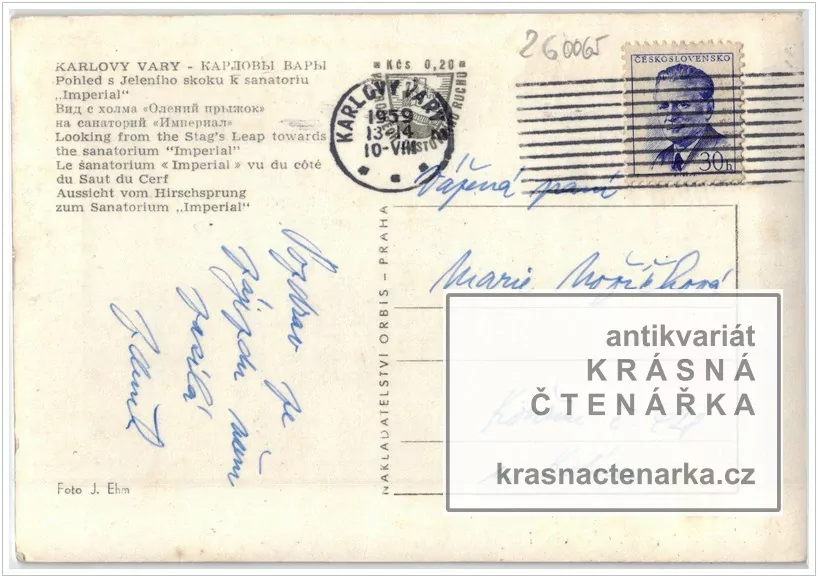 260065
KARLOVY VARY - КАРЛОВЫ ВАРЫ
Pohled s Jeleního skoku k sanatoriu
„Imperial"
Вид с холма «Олений прыжок»
на санаторий «Империал»
Looking from the Stag's Leap towards
the sanatorium "Imperial"
Le sanatorium « Imperial » vu du côté
du Saut du Cerf
Aussicht vom Hirschsprung
zum Sanatorium „Imperial"
Kčs 0,20
KARLOVY VARY 2
1959
13-14
10-VIII
ČESKOSLOVENSKO
30h
Vážená paní
Marie
NAKLADATELSTVÍ ORBIS – PRAHA
Pozdrav ze
zájezdu vám
zasílá
Foto J. Ehm
antikvariát
KRÁSNÁ
ČTENÁŘKA
krasnactenarka.cz